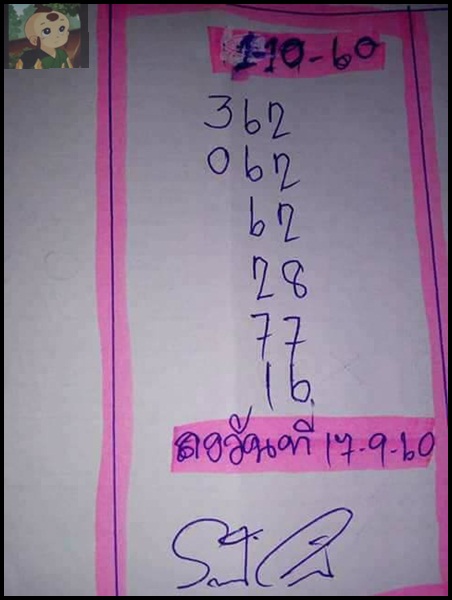 1-10-60
362
062
62
28
77
16
ลงวันที่ 17-9-60